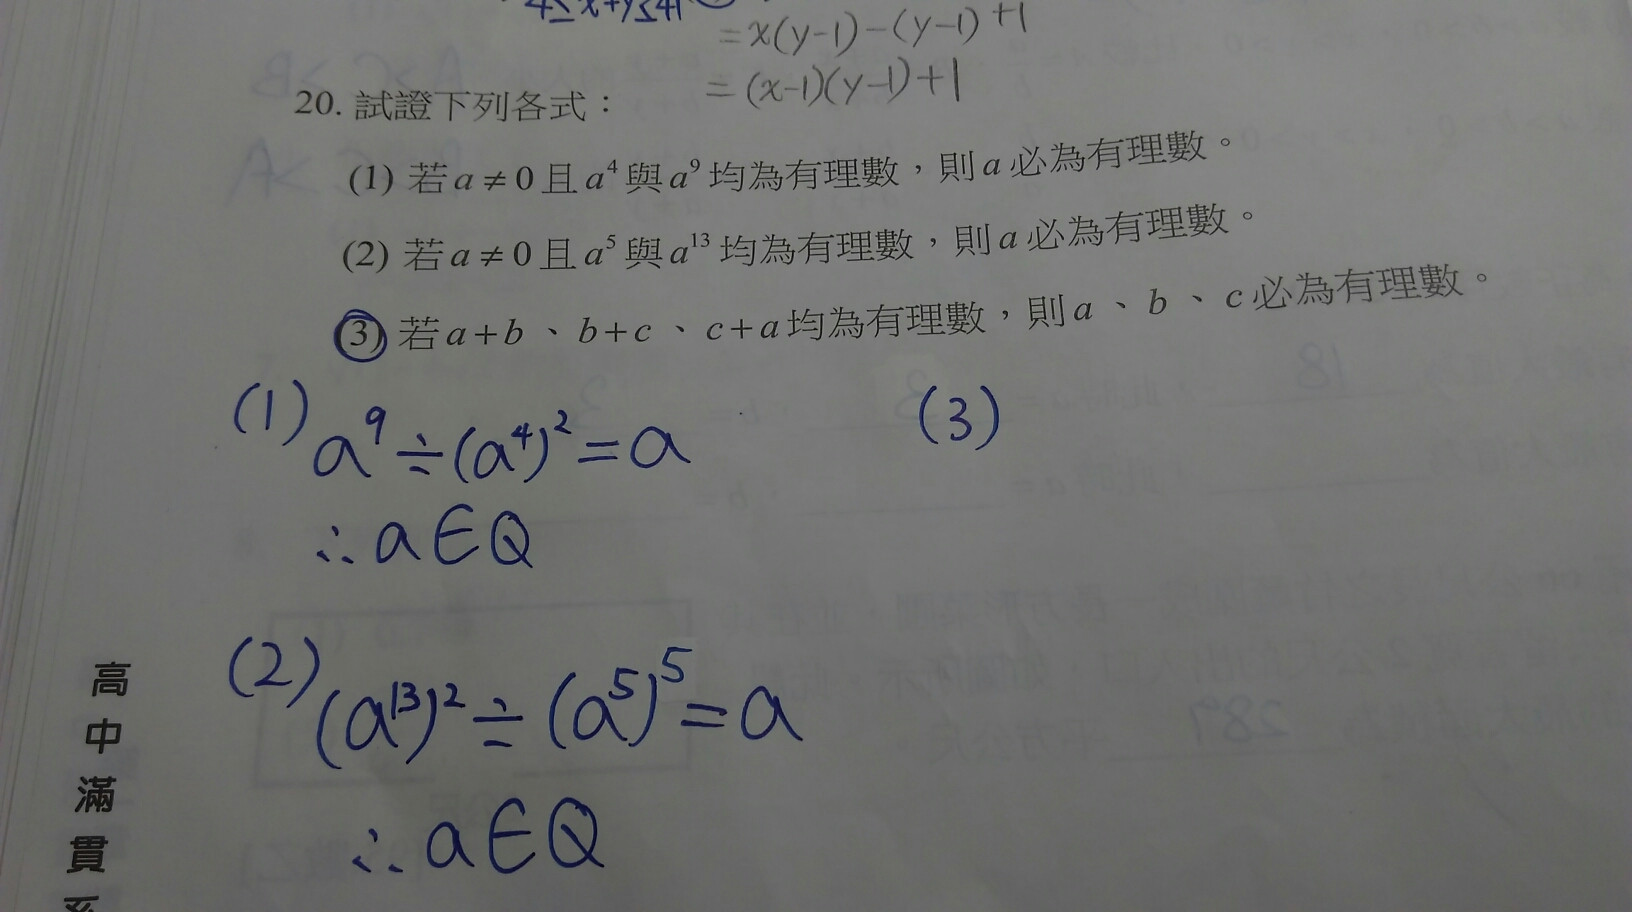 4≤x+y≤41
=x(y-1)-(y-1)+1
=(x-1)(y-1)+1
20. 試證下列各式：
(1) 若 a≠0 且 a⁴ 與 a⁹ 均為有理數，則 a 必為有理數。
(2) 若 a≠0 且 a⁵ 與 a¹³ 均為有理數，則 a 必為有理數。
(3) 若 a+b、b+c、c+a 均為有理數，則 a、b、c 必為有理數。
(1) a⁹÷(a⁴)²=a
∴a∈Q
(2) (a¹³)²÷(a⁵)⁵=a
∴a∈Q
(3)
高中滿貫系